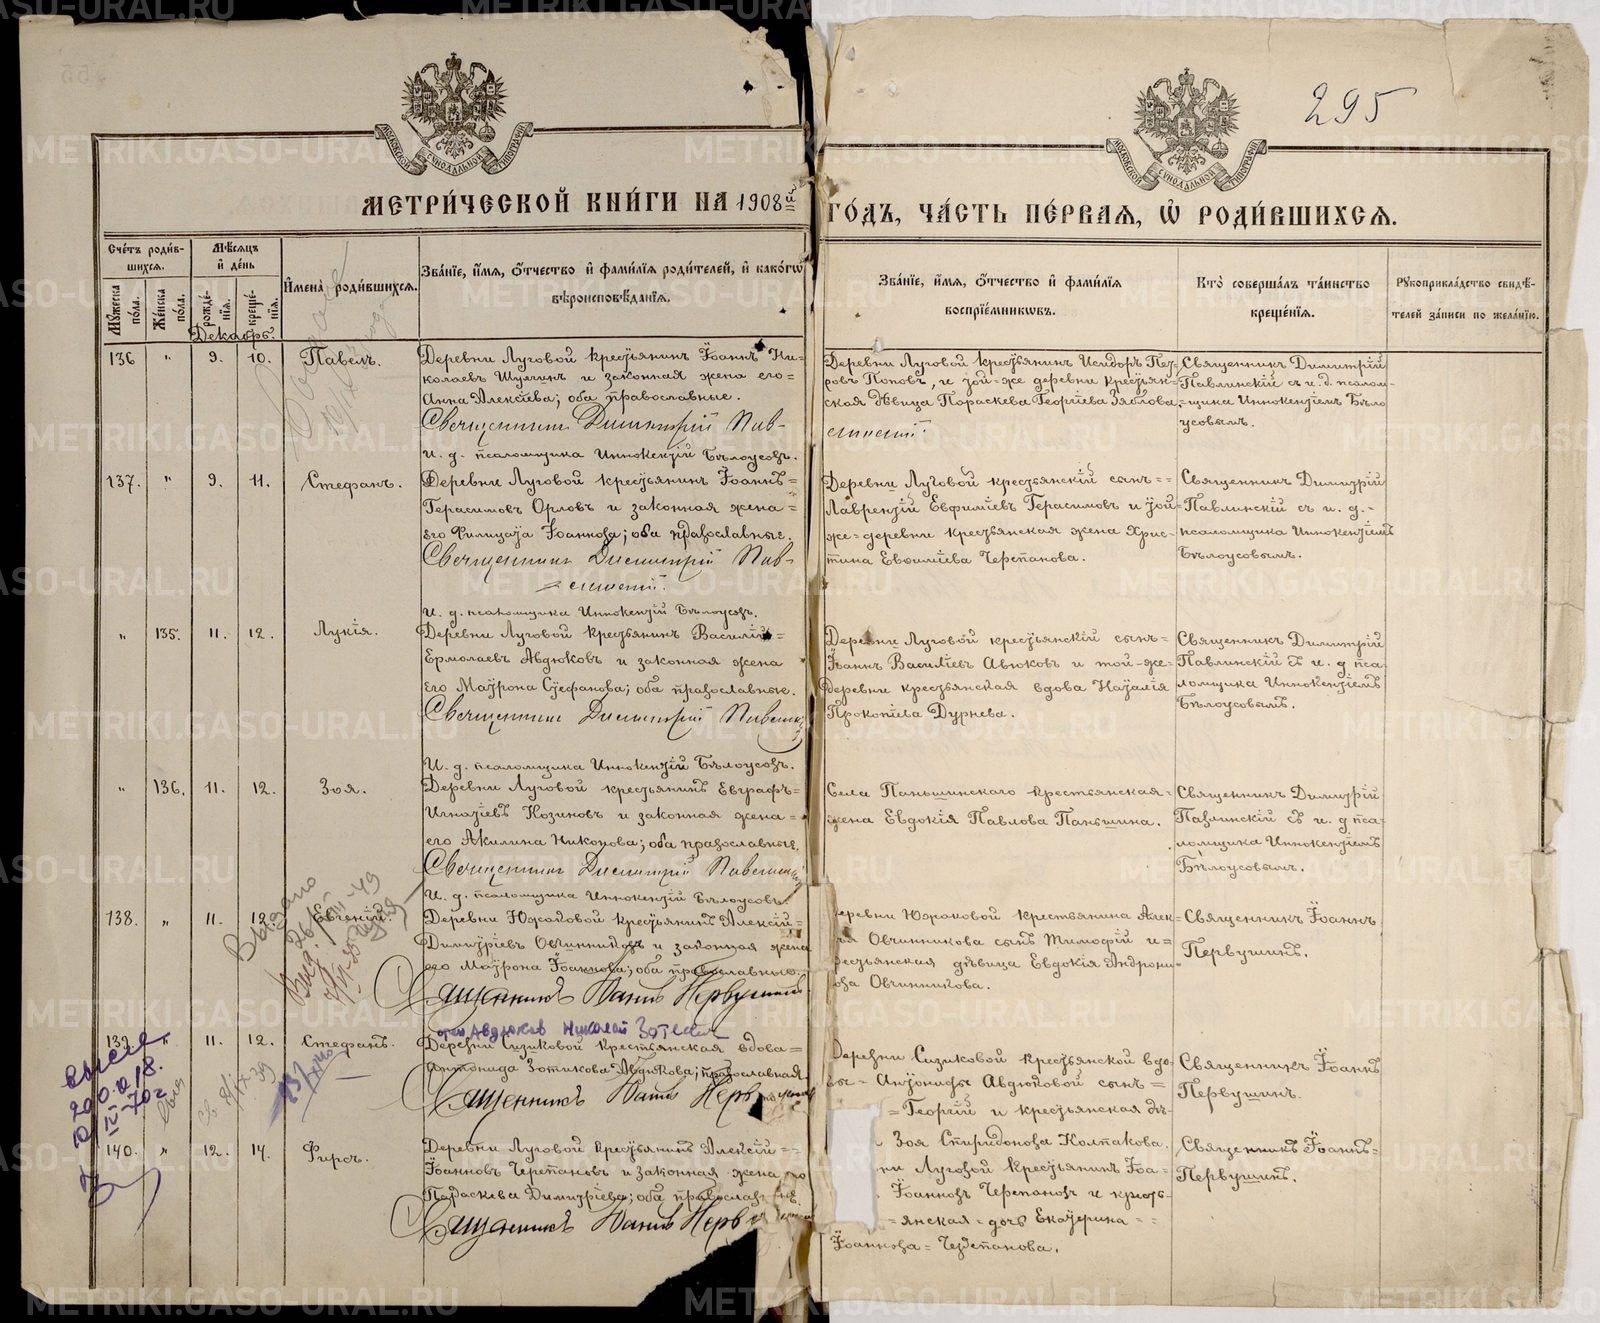 295
МЕТРИ́ЧЕСКОЙ КНИ́ГИ НА 1908й ГО́ДЪ, ЧА́СТЬ ПЕ́РВАЯ, Ѡ РОДИ́ВШИХСЯ.
Сче́тъ роди́вшихся.
Му́жеска по́ла.
Же́нска по́ла.
Мѣ́сяцъ и де́нь
рожде́нїя.
креще́нїя.
Имена̀ роди́вшихся.
Зва́нїе, и́мя, о́тчество и фами́лїя роди́телей, и како́гѡ
вѣроисповѣ́данїя.
Зва́нїе, и́мя, о́тчество и фами́лїя
воспрїе́мникѡвъ.
Кто̀ соверша́лъ та́инство
креще́нїя.
Рукоприкла́дство свидѣ́-
телей за́писи по жела́нїю.
Декабрь
136 " 9. 10. Павелъ.
Деревни Луговой крестьянинъ Іоаннъ Ни-
колаевъ Шулгинъ и законная жена его=
Анна Алексѣева; оба православные.
Священникъ Димитрій Пав-
линскій.
И. д. псаломщика Иннокентій Бѣлоусовъ.
Деревни Луговой крестьянинъ Исидоръ Пет-
ровъ Поповъ, и той-же деревни крестьян-
ская дѣвица Параскева Георгіева Зяблова.
Священникъ Димитрій
Павлинскій съ и. д. псалом-
щика Иннокентіемъ Бѣло
усовымъ.
137. " 9. 11. Стефанъ.
Деревни Луговой крестьянинъ Іоаннъ=
Герасимовъ Орловъ и законная жена=
его Филицата Іоаннова; оба православные.
Священникъ Димитрій Пав-
линскій.
И. д. псаломщика Иннокентій Бѣлоусовъ.
Деревни Луговой крестьянскій сынъ=
Лаврентій Евфиміевъ Герасимовъ и той=
же=деревни крестьянская жена Хрис-
тина Евфиміева Черепанова.
Священникъ Димитрій
Павлинскій съ и. д.-
псаломщика Иннокентіемъ
Бѣлоусовымъ.
" 135. 11. 12. Лукія.
Деревни Луговой крестьянинъ Василій=
Ермолаевъ Авдюковъ и законная жена
его Маѵрона Стефанова; оба православные.
Священникъ Димитрій Павлинскій
И. д. псаломщика Иннокентій Бѣлоусовъ.
Деревни Луговой крестьянскій сынъ=
Іоаннъ Василіевъ Авюковъ и той-же=
деревни крестьянская вдова Наталія
Прокопіева Дурнева.
Священникъ Димитрій
Павлинскій съ и. д пса-
ломщика Иннокентіемъ
Бѣлоусовымъ.
" 136. 11. 12. Зоя.
Деревни Луговой крестьянинъ Евграфъ=
Игнатіевъ Козиновъ и законная жена=
его Акилина Никонова; оба православные.
Священникъ Димитрій Павлинскій
И. д. псаломщика Иннокентій Бѣлоусовъ.
Села Паньшинскаго крестьянская=
жена Евдокія Павлова Паньшина.
Священникъ Димитрій
Павлинскій съ и. д пса-
ломщика Иннокентіемъ
Бѣлоусовымъ.
138. " 11. 12. Евгеній.
Деревни Южаковой крестьянинъ Алексій=
Димитріевъ Овчинниковъ и законная жена
его Маѵрона Іоаннова; оба православного.
Священникъ Іоаннъ Первушинъ
Деревни Южаковой крестьянина Алек-
Овчинникова сынъ Тимофій и=
крестьянская дѣвица Евдокія Андрони-
кова Овчинникова.
Священникъ Іоаннъ
Первушинъ.
отец Авдюков Николай Зотеевич
139. " 11. 12. Стефанъ.
Деревни Сизиковой крестьянская вдова=
Антонида Зотикова Авдюкова; православная
Священникъ Іоаннъ Перв
Деревни Сизиковой крестьянской вдо-
вы= Антониды Авдюковой сынъ=
=Георгій и крестьянская дѣ-
Зоя Спиридонова Колпакова.
Священникъ Іоаннъ
Первушинъ.
140. " 12. 14. Фирсъ.
Деревни Луговой крестьянинъ Алексій=
Іоанновъ Черепановъ и законная жена
Параскева Димитріева; оба православ
Священникъ Іоаннъ Перв
ни Луговой крестьянинъ Іоа-
Іоанновъ Черепановъ и кресть-
=янская=дочь Екатерина=
Іоаннова=Черепанова.
Священникъ Іоаннъ=
Первушинъ.
METRIKI.GASO-URAL.RU